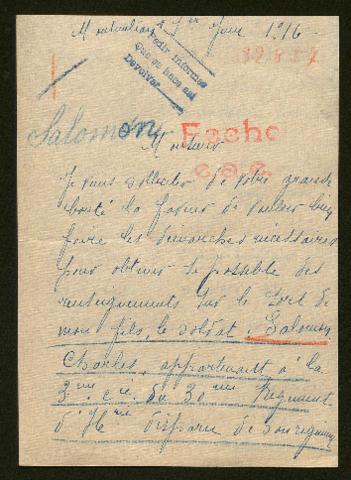 1er Juin 1916
Pedir informes
Que se hace así
Devolver
Salomon
Fecho
Monsieur
Je viens solliciter de votre grande
bonté la faveur de vouloir bien
faire les démarches nécessaires
pour obtenir le possible des
renseignements sur le sort de
mon fils, le soldat Salomon
Charles, appartenant à la
3me Cie du 30me Régiment
d'Irie disparu